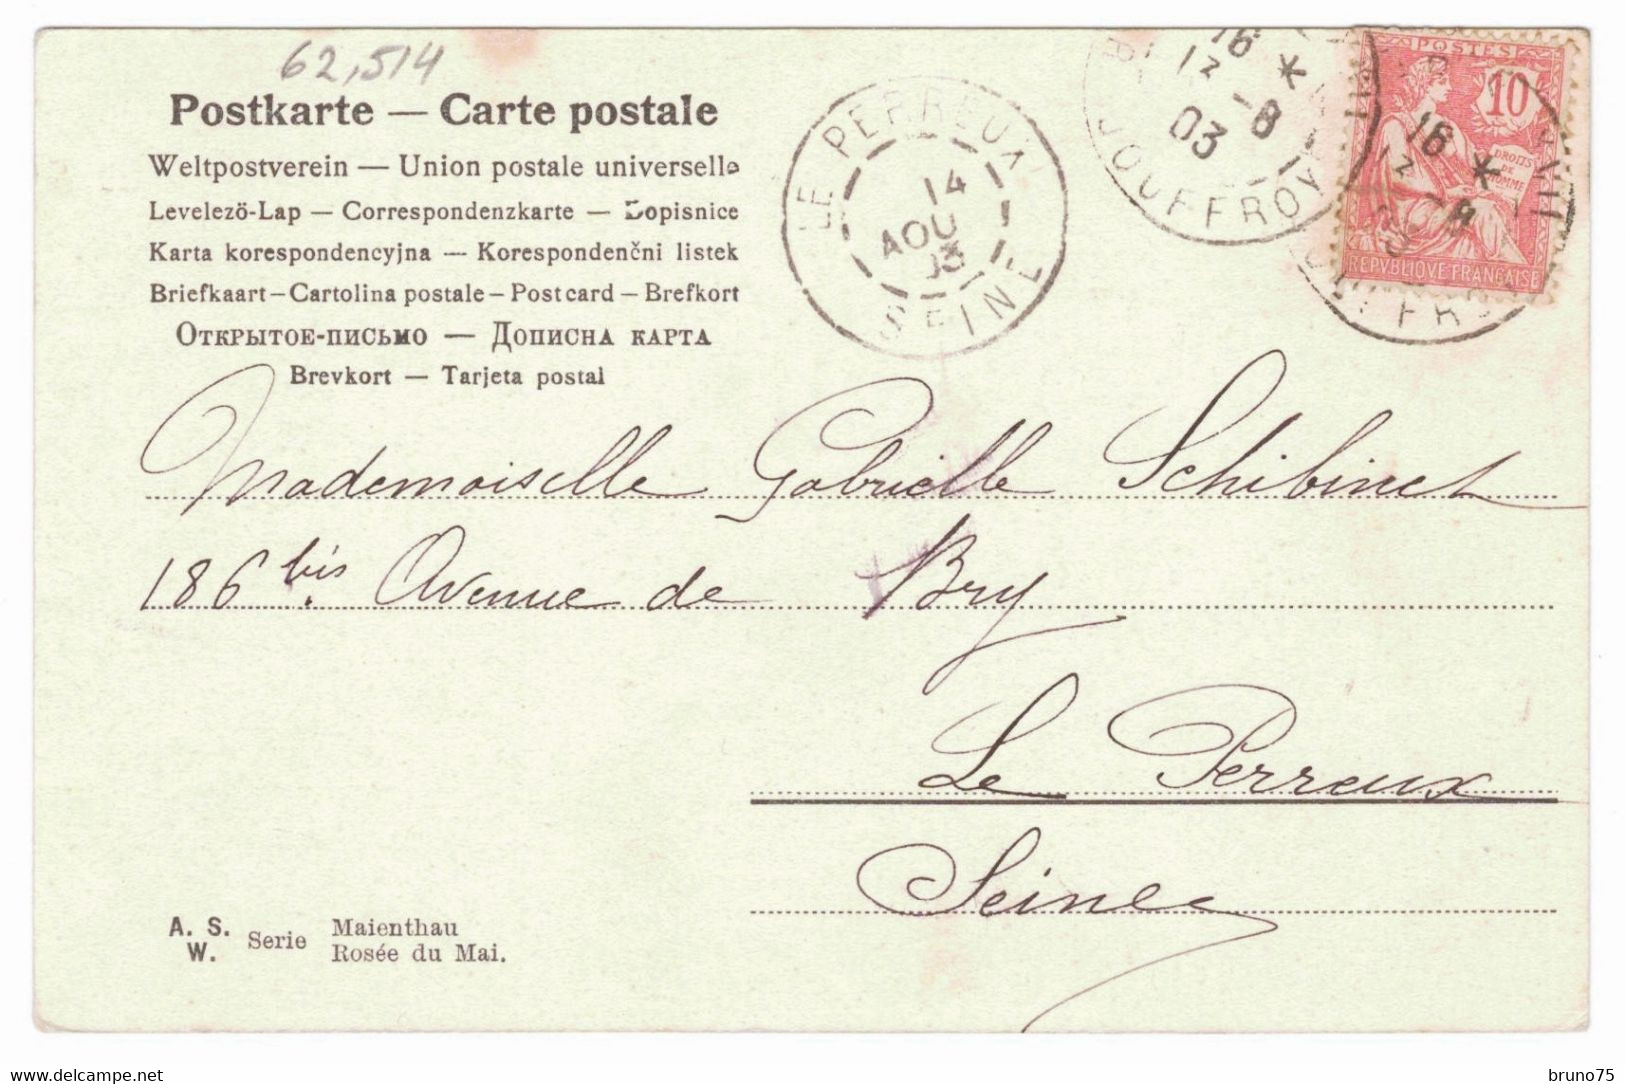 62,514
Postkarte — Carte postale
Weltpostverein — Union postale universelle
Levelező-Lap — Correspondenzkarte — Dopisnice
Karta korespondencyjna — Korespondenčni listek
Briefkaart — Cartolina postale — Post card — Brefkort
Открытое-письмо — Дописна карта
Brevkort — Tarjeta postal
LE PERREUX
14
AOUT
03
SEINE
16 *
13 -8
03
JOUFFROY
POSTES
10
DROITS
DE
L'HOMME
REPVBLIQVE FRANÇAISE
16 *
Mademoiselle Gabrielle Schibinet
186 bis Avenue de Bry
Le Perreux
Seine
A. S. W. Serie Maienthau
Rosée du Mai.
bruno75